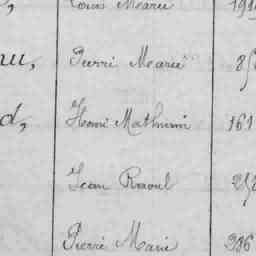 Louis Marie
Pierre Marie
d, Henri Mathurin 161
Jean Raoul
Pierre Marie 286